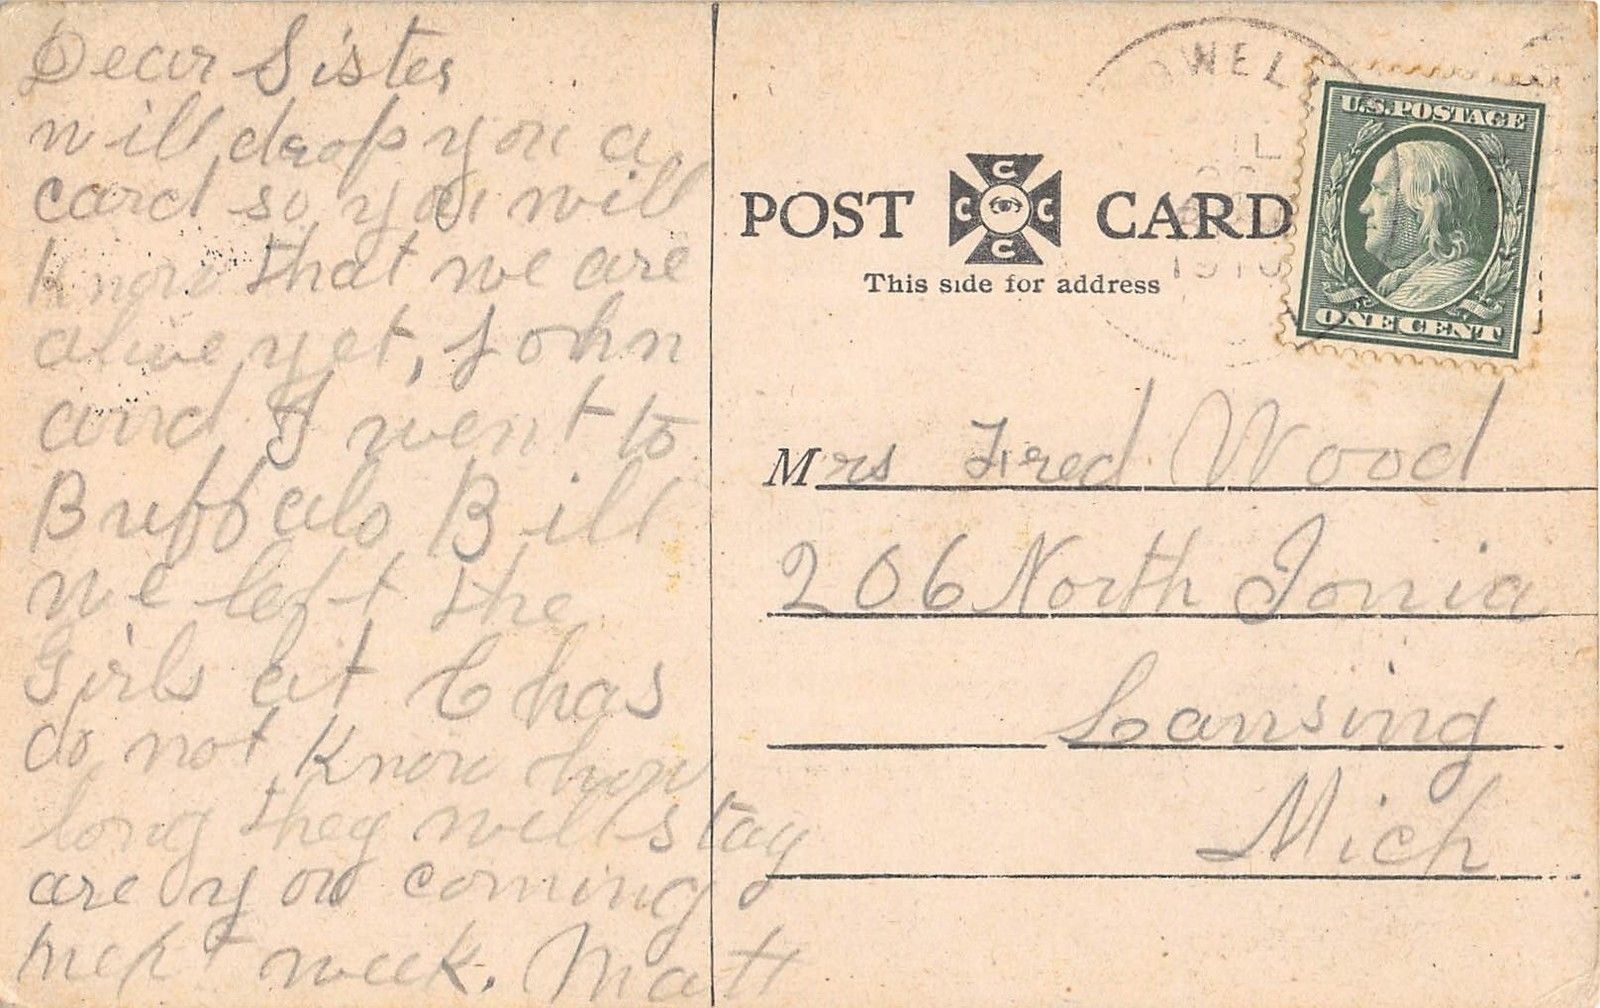 Dear Sister
will drop you a
card so you will
Know that we are
alive yet, John
and I went to
Buffalo Bill
we left the
Girls at Chas
do not Know how
long they will stay
are you coming
next week. Matt
POST CARD
C C C C
This side for address
OWEL
1910
U.S. POSTAGE
ONE CENT
Mrs Fred Wood
206 North Ionia
Lansing
Mich